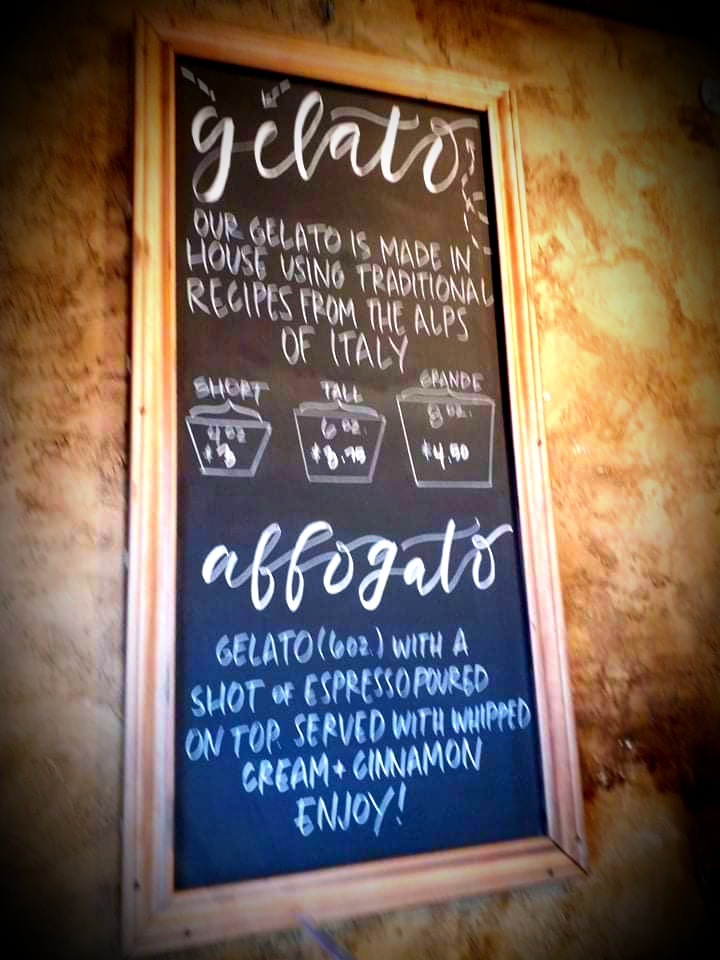 gelato
OUR GELATO IS MADE IN
HOUSE USING TRADITIONAL
RECIPES FROM THE ALPS
OF ITALY
SHORT TALL GRANDE
4oz 6 oz. 8 oz.
$3 $3.75 $4.50
affogato
GELATO (6oz.) WITH A
SHOT OF ESPRESSO POURED
ON TOP. SERVED WITH WHIPPED
CREAM + CINNAMON
ENJOY!